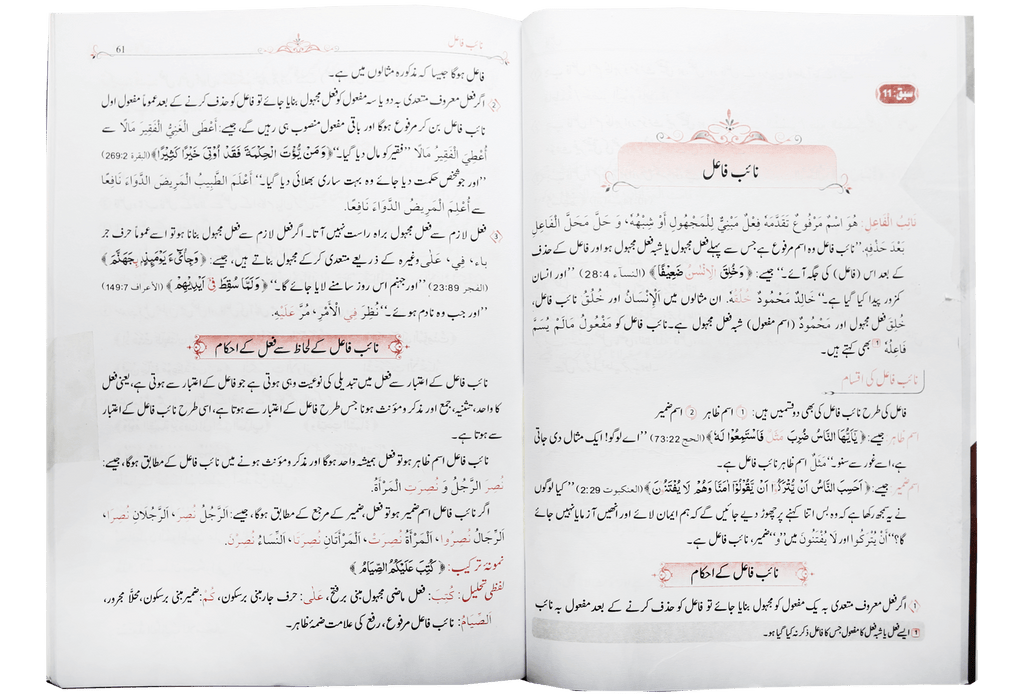 سبق: 11
نائب فاعل
نَائِبُ الْفَاعِلِ: هُوَ اسْمٌ مَرْفُوعٌ تَقَدَّمَهُ فِعْلٌ مَبْنِيٌّ لِلْمَجْهُولِ أَوْ شِبْهُهُ، وَ حَلَّ مَحَلَّ الْفَاعِلِ
بَعْدَ حَذْفِهِ. ’’نائب فاعل وہ اسم مرفوع ہے جس سے پہلے فعل مجہول یا شبہ فعل مجہول ہو اور فاعل کے حذف
کے بعد اس (فاعل) کی جگہ آئے۔‘‘ جیسے: ﴿وَخُلِقَ الْاِنْسٰنُ ضَعِیْفًا﴾ (النساء 28:4) ’’اور انسان
کمزور پیدا کیا گیا ہے۔‘‘ خَالِدٌ مَحْمُودٌ خُلُقُهُ. ان مثالوں میں اَلْإِنْسَانُ اور خُلُقُ نائب فاعل،
خُلِقَ فعل مجہول اور مَحْمُودٌ (اسم مفعول) شبہ فعل مجہول ہے۔ نائب فاعل کو مَفْعُولُ مَالَمْ يُسَمَّ
فَاعِلُهُ ¹ بھی کہتے ہیں۔
نائب فاعل کی اقسام
فاعل کی طرح نائب فاعل کی بھی دو قسمیں ہیں: ① اسم ظاہر ② اسم ضمیر
اسم ظاہر جیسے: ﴿یٰۤاَیُّهَا النَّاسُ ضُرِبَ مَثَلٌ فَاسْتَمِعُوْا لَهٗ﴾ (الحج 73:22) ’’اے لوگو! ایک مثال دی جاتی
ہے، اسے غور سے سنو۔‘‘ مَثَلٌ اسم ظاہر نائب فاعل ہے۔
اسم ضمیر جیسے: ﴿اَحَسِبَ النَّاسُ اَنْ یُّتْرَكُوْۤا اَنْ یَّقُوْلُوْۤا اٰمَنَّا وَهُمْ لَا یُفْتَنُوْنَ﴾ (العنکبوت 2:29) ’’کیا لوگوں
نے یہ سمجھ رکھا ہے کہ وہ بس اتنا کہنے پر چھوڑ دیے جائیں گے کہ ہم ایمان لائے اور انھیں آزمایا نہیں جائے
گا؟‘‘ أَنْ يُتْرَكُوا اور لَا يُفْتَنُونَ میں ’’و‘‘ ضمیر، نائب فاعل ہے۔
نائب فاعل کے احکام
① اگر فعل معروف متعدی بہ یک مفعول کو مجہول بنایا جائے تو فاعل کو حذف کرنے کے بعد مفعول بہ نائب
¹ ایسے فعل یا شبہ فعل کا مفعول جس کا فاعل ذکر نہ کیا گیا ہو۔
نائب فاعل
61
فاعل ہوگا جیسا کہ مذکورہ مثالوں میں ہے۔
② اگر فعل معروف متعدی بہ دو یا سہ مفعول کو فعل مجہول بنایا جائے تو فاعل کو حذف کرنے کے بعد عموماً مفعول اول
نائب فاعل بن کر مرفوع ہوگا اور باقی مفعول منصوب ہی رہیں گے، جیسے: أَعْطَى الْغَنِيُّ الْفَقِيرَ مَالًا سے
أُعْطِيَ الْفَقِيرُ مَالًا ’’فقیر کو مال دیا گیا۔‘‘ ﴿وَمَنْ یُّؤْتَ الْحِكْمَةَ فَقَدْ اُوْتِیَ خَیْرًا كَثِیْرًا﴾ (البقرة 269:2)
’’اور جو شخص حکمت دیا جائے وہ بہت ساری بھلائی دیا گیا۔‘‘ أَعْلَمَ الطَّبِيبُ الْمَرِيضَ الدَّوَاءَ نَافِعًا
سے أُعْلِمَ الْمَرِيضُ الدَّوَاءَ نَافِعًا.
③ فعل لازم سے فعل مجہول براہ راست نہیں آتا۔ اگر فعل لازم سے فعل مجہول بنانا ہو تو اسے عموماً حرف جر
باء، فِي، عَلٰى وغیرہ کے ذریعے متعدی کر کے مجہول بناتے ہیں، جیسے: ﴿وَجِایْٓءَ یَوْمَىِٕذٍۭ بِجَهَنَّمَ﴾
(الفجر 23:89) ’’اور جہنم اس روز سامنے لایا جائے گا۔‘‘ ﴿وَلَمَّا سُقِطَ فِیْۤ اَیْدِیْهِمْ﴾ (الأعراف 149:7)
’’اور جب وہ نادم ہوئے۔‘‘ نُظِرَ فِي الْأَمْرِ، مُرَّ عَلَيْهِ.
نائب فاعل کے لحاظ سے فعل کے احکام
نائب فاعل کے اعتبار سے فعل میں تبدیلی کی نوعیت وہی ہوتی ہے جو فاعل کے اعتبار سے ہوتی ہے، یعنی فعل
کا واحد، تثنیہ، جمع اور مذکر و مؤنث ہونا جس طرح فاعل کے اعتبار سے ہوتا ہے، اسی طرح نائب فاعل کے اعتبار
سے ہوتا ہے۔
نائب فاعل اسم ظاہر ہو تو فعل ہمیشہ واحد ہوگا اور مذکر و مؤنث ہونے میں نائب فاعل کے مطابق ہوگا، جیسے:
نُصِرَ الرَّجُلُ وَ نُصِرَتِ الْمَرْأَةُ.
اگر نائب فاعل اسم ضمیر ہو تو فعل، ضمیر کے مرجع کے مطابق ہوگا، جیسے: اَلرَّجُلُ نُصِرَ، اَلرَّجُلَانِ نُصِرَا،
اَلرِّجَالُ نُصِرُوا، اَلْمَرْأَةُ نُصِرَتْ، اَلْمَرْأَتَانِ نُصِرَتَا، اَلنِّسَاءُ نُصِرْنَ.
نمونۂ ترکیب: ﴿كُتِبَ عَلَیْكُمُ الصِّیَامُ﴾
لفظی تحلیل: كُتِبَ: فعل ماضی مجہول مبنی بر فتح، عَلٰى: حرف جار مبنی بر سکون، كُمْ: ضمیر مبنی بر سکون، محلاً مجرور،
اَلصِّيَامُ: نائب فاعل مرفوع، رفع کی علامت ضمۂ ظاہر۔